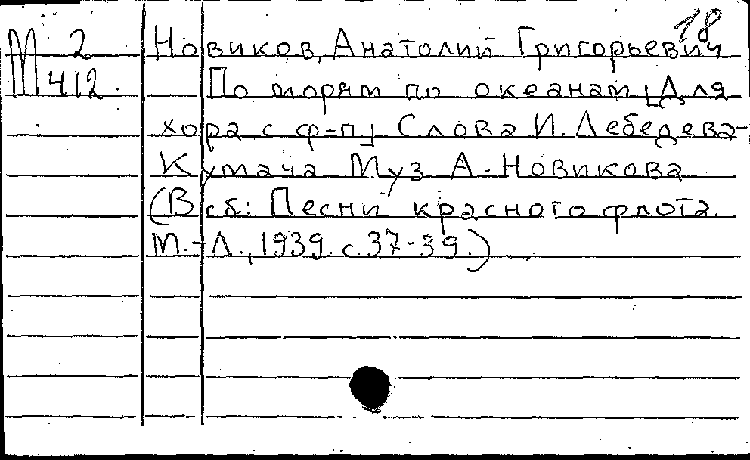 18
М 2
412.
Новиков, Анатолий Григорьевич
По морям по океанам [Для
хора с ф-п] Слова И. Лебедева-
Кумача Муз А. Новикова
(В сб: Песни красного флота.
М.-Л., 1939. с. 37-39.)